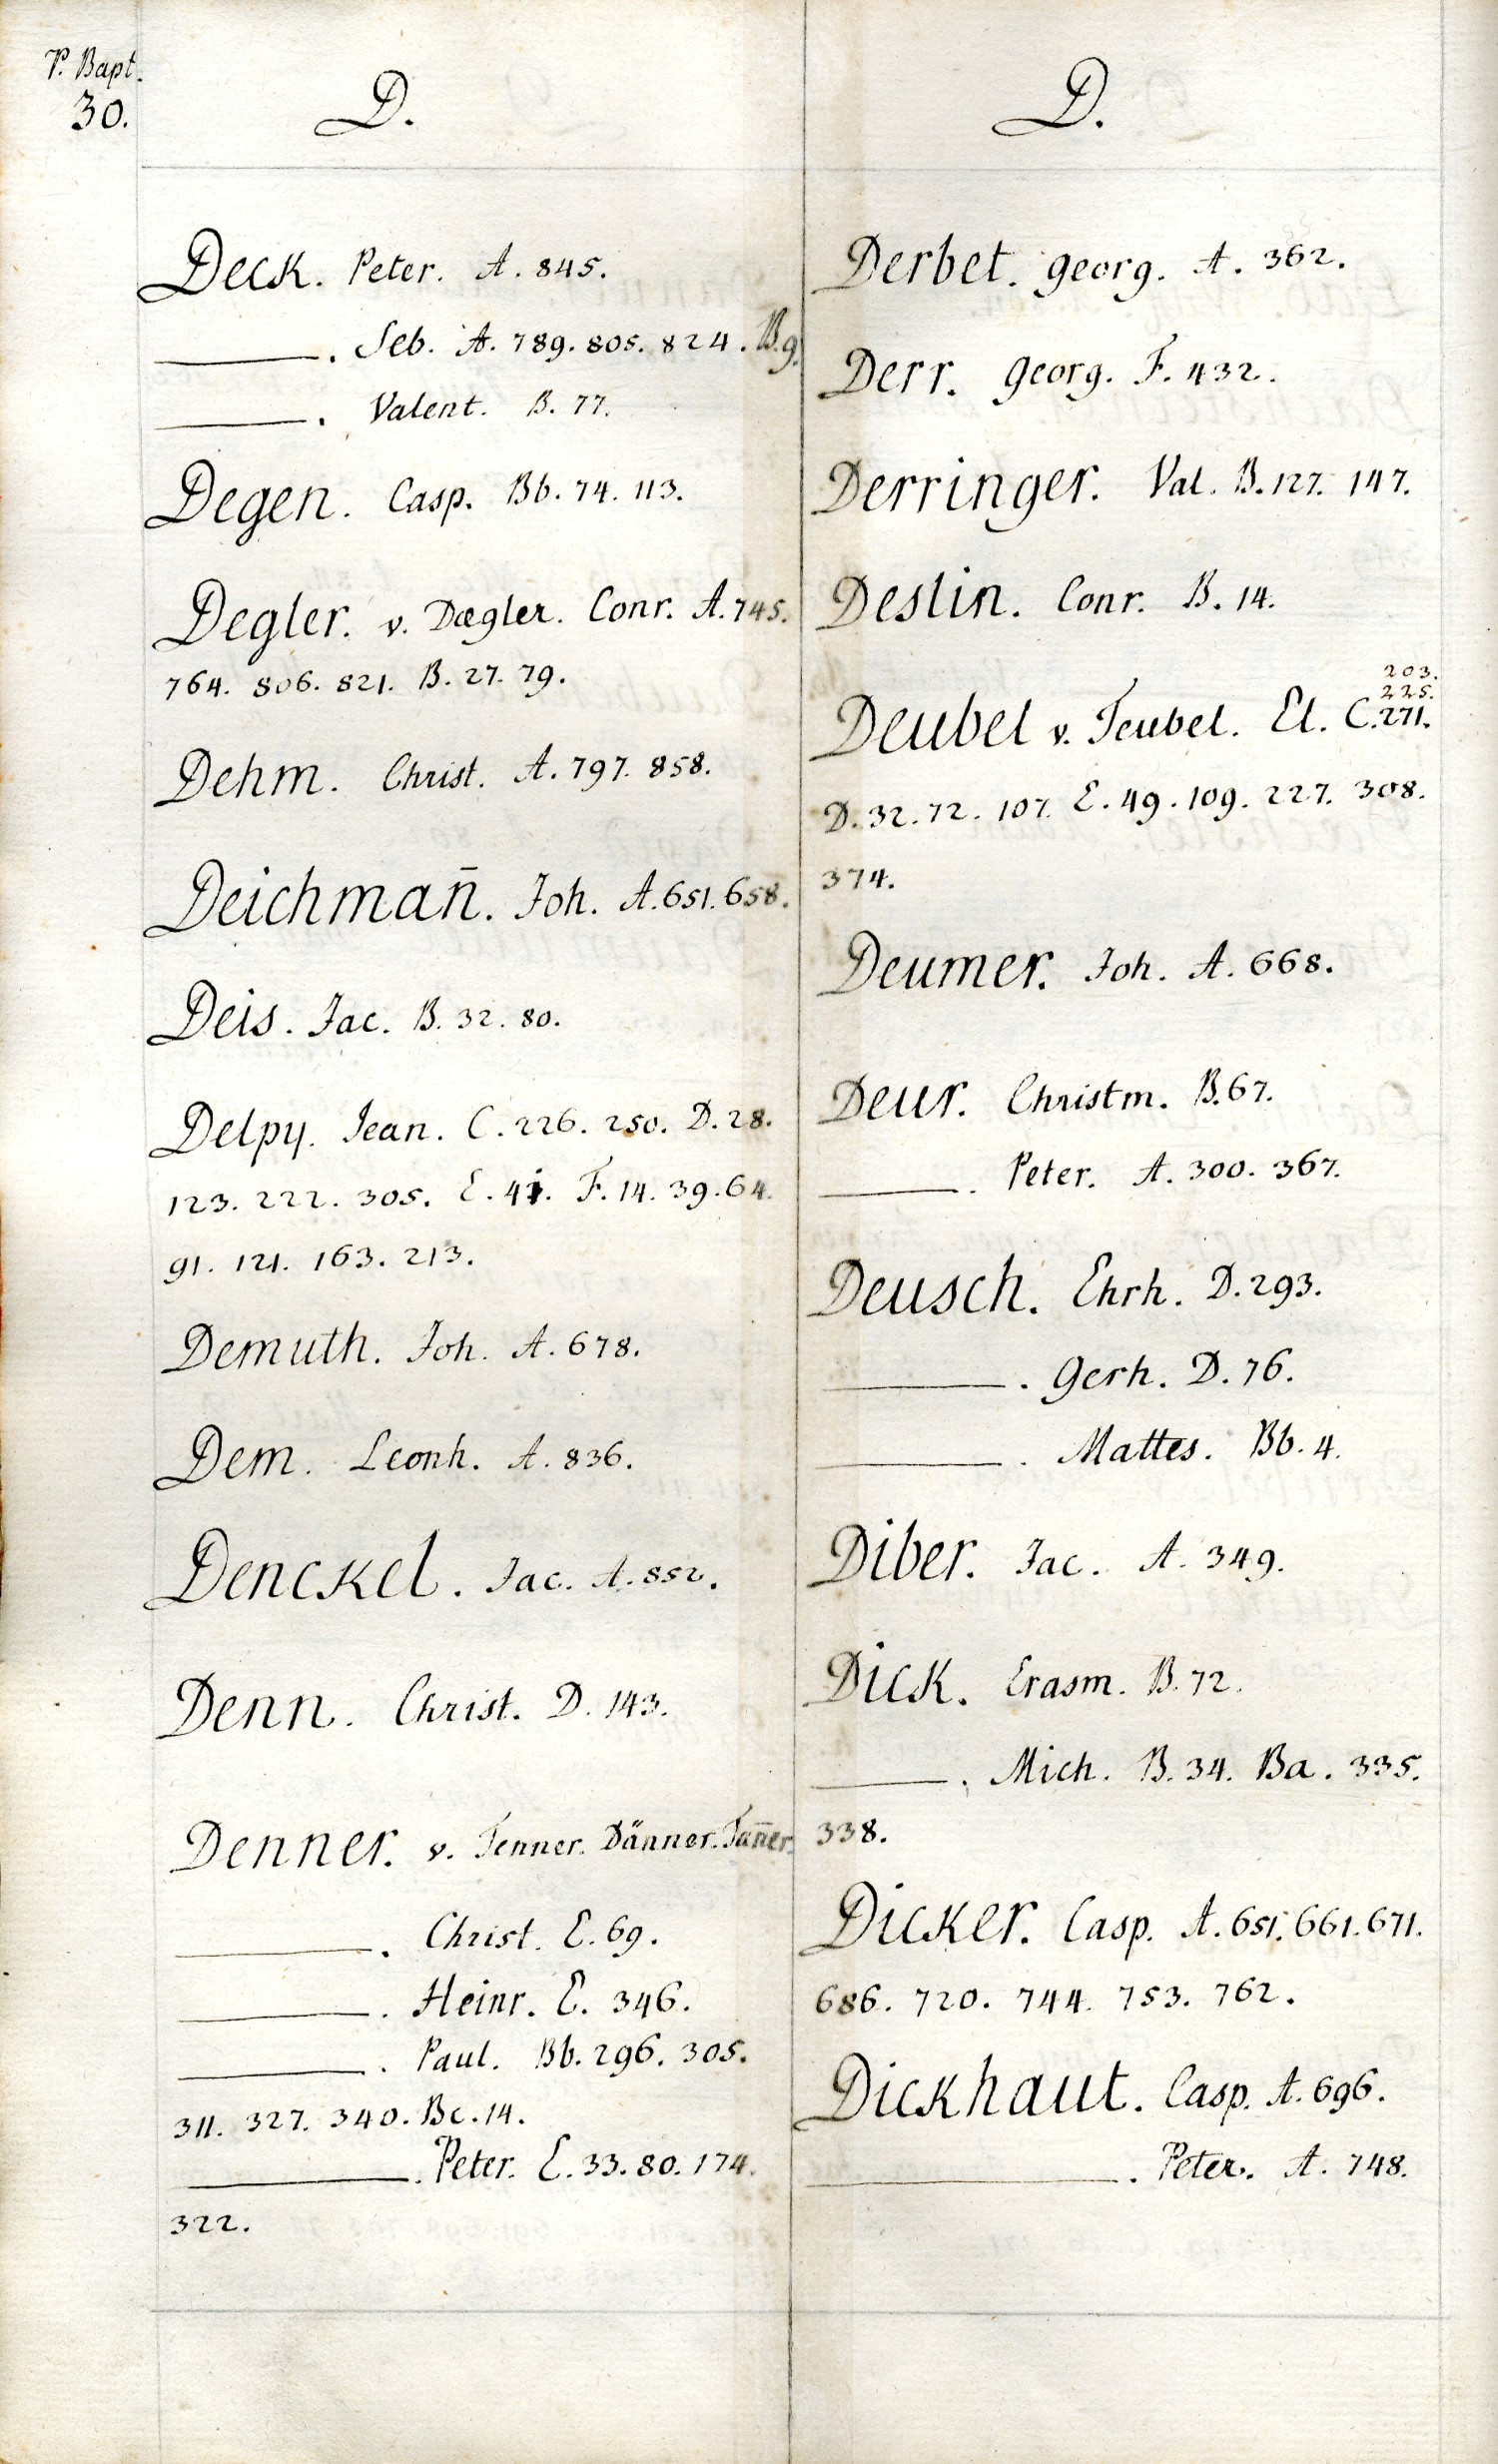 P. Bapt.
30.
D.
Deck. Peter. A. 845.
———. Seb. A. 789. 805. 824. B. 9.
———. Valent. B. 77.
Degen. Casp. Bb. 74. 113.
Degler. v. Dægler. Conr. A. 745.
764. 806. 821. B. 27. 79.
Dehm. Christ. A. 797. 858.
Deichman̄. Joh. A. 651. 658.
Deis. Jac. B. 32. 80.
Delpy. Jean. C. 226. 250. D. 28.
123. 222. 305. E. 41. F. 14. 39. 64.
91. 121. 163. 213.
Demuth. Joh. A. 678.
Dem. Leonh. A. 836.
Denckel. Jac. A. 852.
Denn. Christ. D. 143.
Denner. v. Tenner. Dänner. Tan̄er.
———. Christ. E. 69.
———. Heinr. E. 346.
———. Paul. Bb. 296. 305.
311. 327. 340. Bc. 14.
———. Peter. E. 33. 80. 174.
322.
D.
Derbet. Georg. A. 362.
Derr. Georg. F. 432.
Derringer. Val. B. 127. 147.
Deslin. Conr. B. 14.
203.
225.
Deubel v. Teubel. El. C. 271.
D. 32. 72. 107. E. 49. 109. 227. 308.
374.
Deumer. Joh. A. 668.
Deur. Christm. B. 67.
———. Peter. A. 300. 367.
Deusch. Ehrh. D. 293.
———. Gerh. D. 76.
———. Mattes. Bb. 4.
Diber. Jac. A. 349.
Dick. Erasm. B. 72.
———. Mich. B. 34. Ba. 335.
338.
Dicker. Casp. A. 651. 661. 671.
686. 720. 744. 753. 762.
Dickhaut. Casp. A. 696.
———. Peter. A. 748.